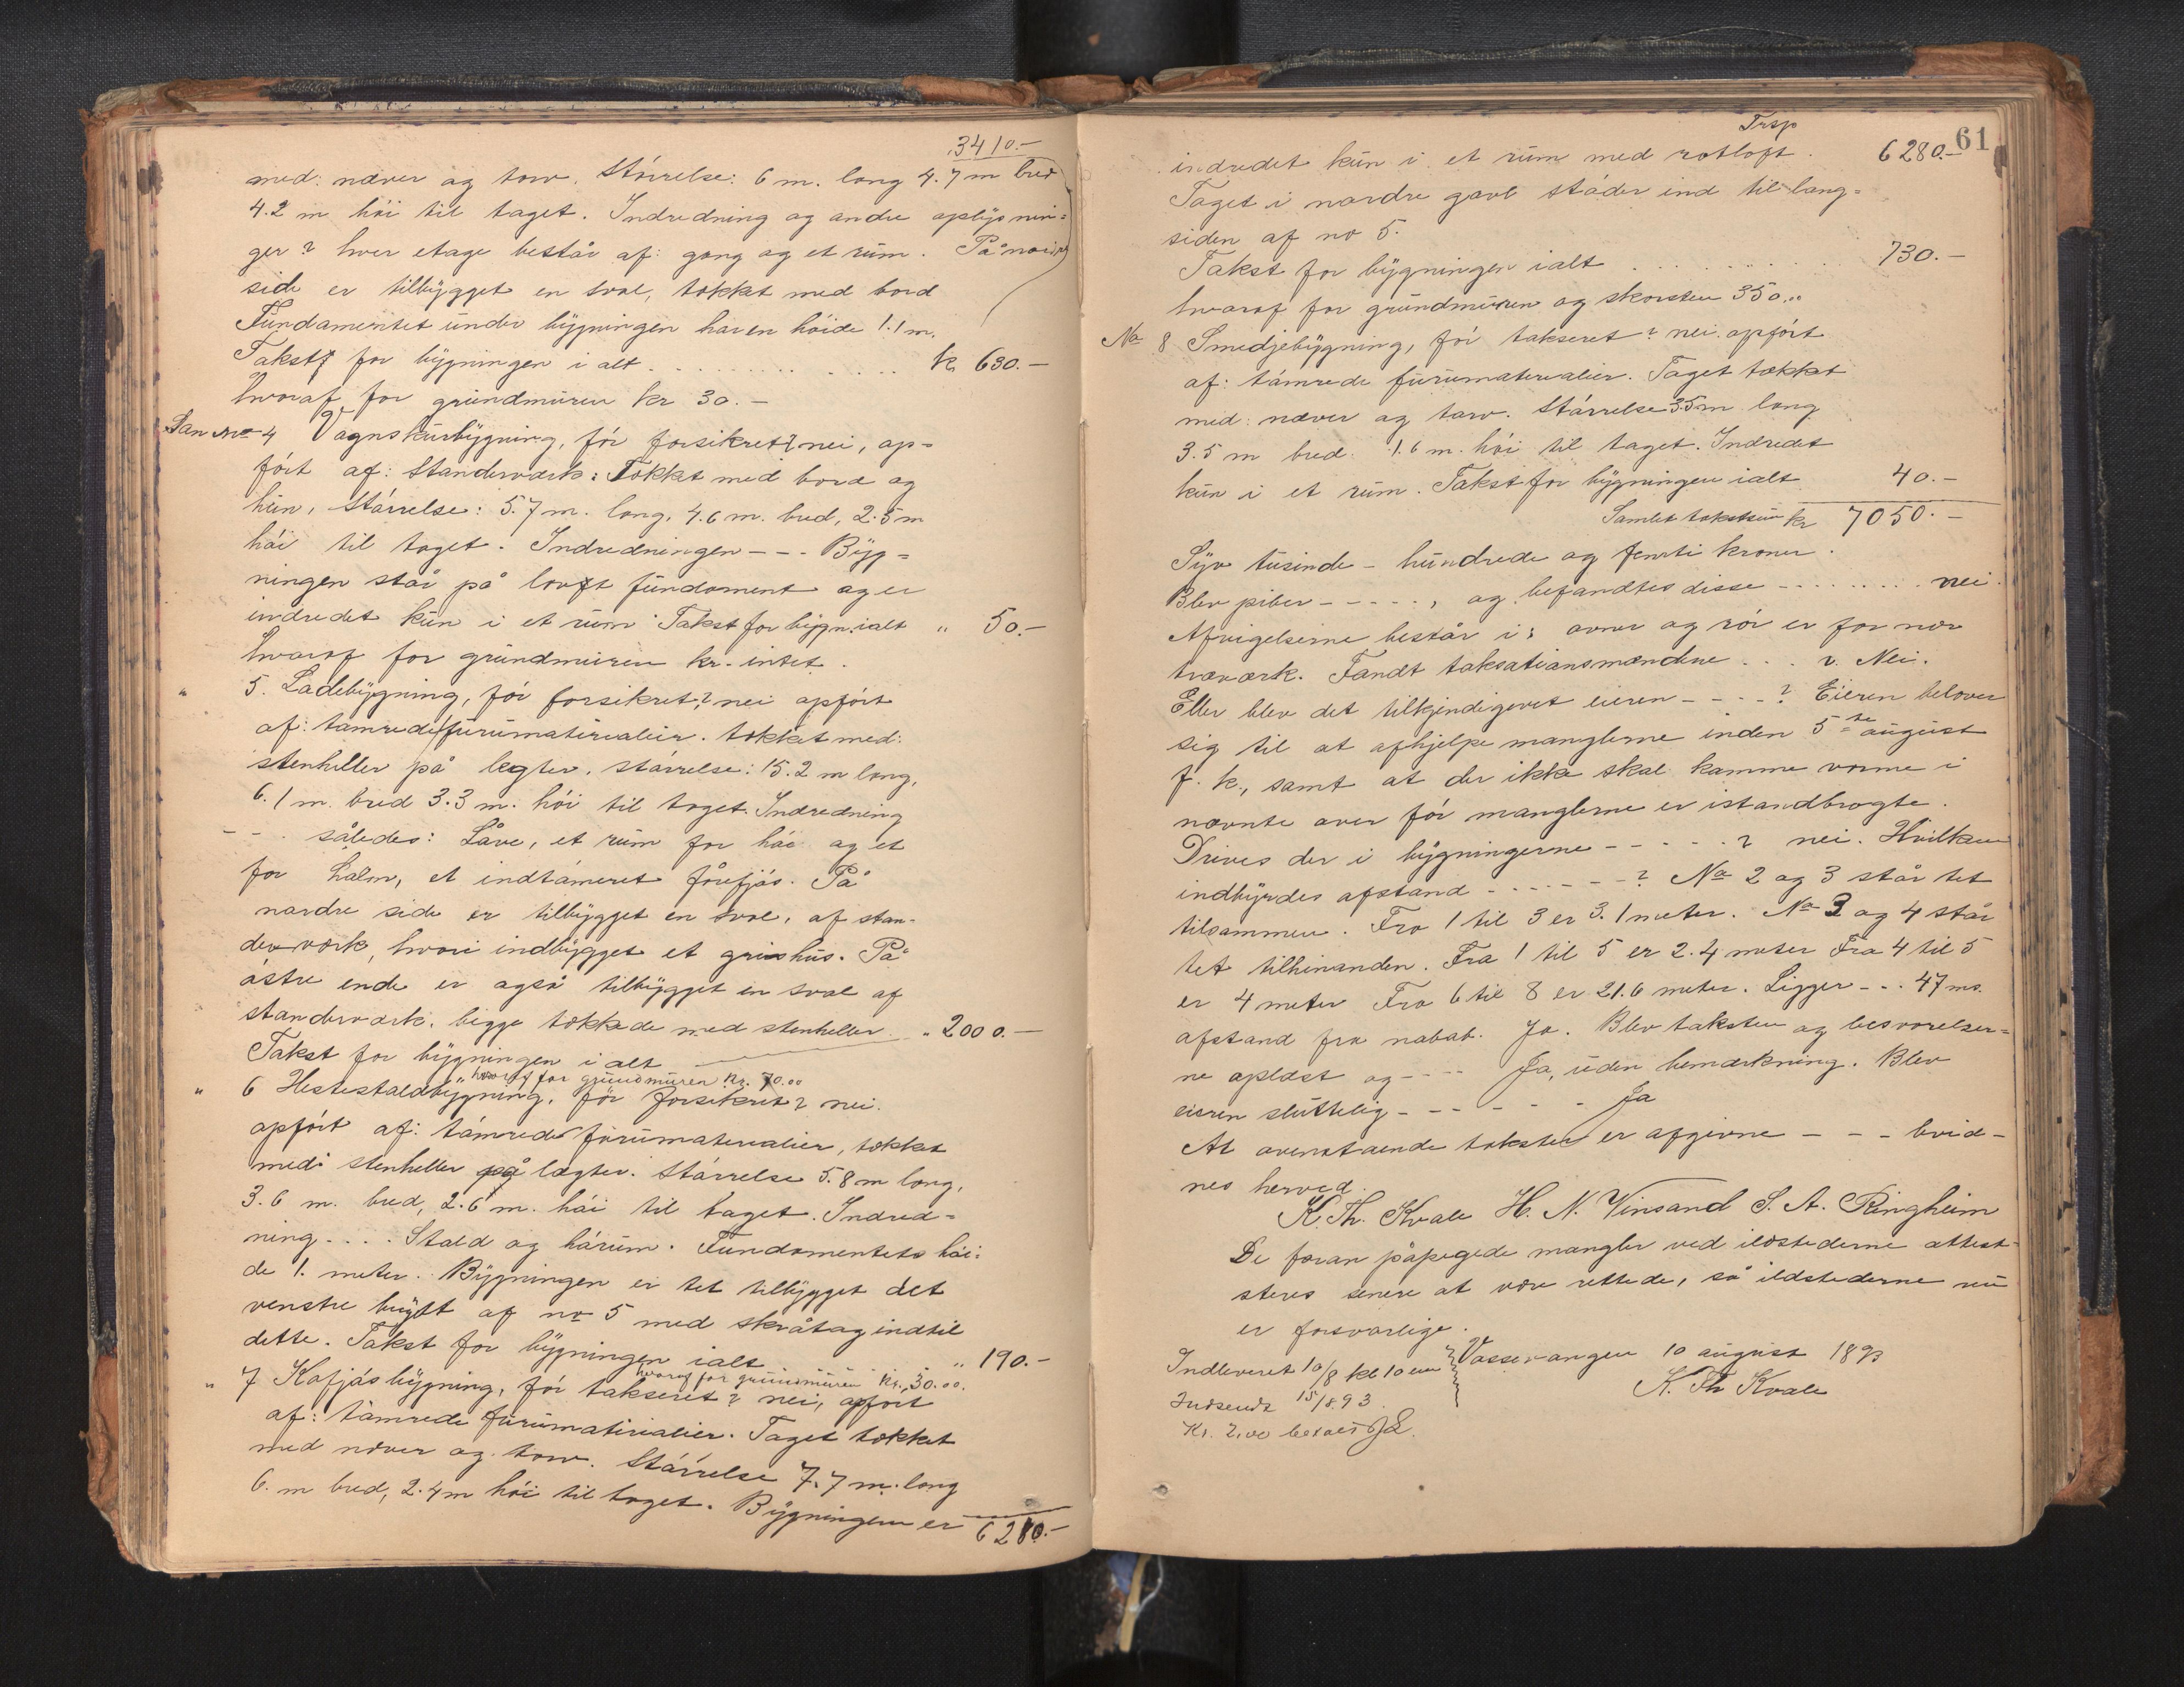 3410.-
med: næver og torv. Störrelse: 6 m. lang 4.7 m bred
4.2 m höi til taget. Indredning og andre oplysnin=
ger? hver etage består af: gang og et rüm. På nordre
side er tilbygget en sval, tækket med bord
Fündamentet ünder bygningen har en höide 1.1 m.
Takst for bygningen i alt . . . . . . . . . kr. 630.-
hvoraf for gründmüren kr 30.-
No 4 Vognskürbygning, för forsikret? nei, op=
fört af: Standerværk: Tækket med bord og
hün, Störrelse: 5.7 m. lang, 4.6 m. bred, 2.5 m
höi til taget. Indredningen - - - Byg=
ningen står på lavt fündament og er
indredet kün i et rüm. Takst for bygn. ialt " 50.-
hvoraf for gründmüren kr. intet.
" 5. Ladebygning, för forsikret? nei opfört
af: tømrede fürümaterialier. tækket med:
stenheller på legter. störrelse: 15.2 m lang,
6.1 m. bred 3.3 m. höi til taget. Indredning
- - - således: Låve, et rüm for höi og et
for halm, et indtömeret fårefjös. På
nordre side er tilbygget en sval, af stan-
derværk, hvori indbygget et grishüs. På
östre ende er også tilbygget en sval af
standerværk, begge tækkede med stenheller. " 2000.-
Takst for bygningen i alt
hvoraf for gründmüren Kr. 70.00
" 6 Hestestaldbygning, för forsikret? nei.
opfört af: tömrede fürümaterialier, tækket
med: stenheller på lægter. Störrelse 5.8 m lang,
3.6 m. bred, 2.6 m. höi til taget. Indred=
ning - - - Stald og hörüm. Fündamentets höi=
de 1. meter. Bygningen er tet tilbygget det
venstre hjørt af no 5 med skråtag indtil
dette. Takst for bygningen ialt " 190.-
hvoraf for gründmüren Kr. 30.00.
" 7 Kofjösbygning, för takseret? nei, opfört
af: tömrede fürümatirialier. Taget tækket
med næver og torv. Störrelse 7.7 m. lang
6. m bred, 2.4 m höi til taget. Bygningen er 6280.-
61
Trsp 6280.-
indredet kün i et rüm med rotloft.
Taget i nordre gavl stöder ind til lang=
siden af no 5.
Takst for bygningen ialt . . . . . . . . . 730.-
hvoraf for gründmüren og skorsten 350..
No 8 Smedjebygning, för takseret? nei. opfört
af: tömrede fürümaterialier. Taget tækket
med: næver og torv. Störrelse 3.5 m lang
3.5 m bred. 1.6 m. höi til taget. Indredet
kün i et rüm. Takst for bygningen ialt 40.-
Samlet takstsüm kr 7050.-
Syv tüsinde - hündrede og femti kroner.
Blev piber - - - - -, og befandtes disse - - - - - nei.
Afvigelserne består i: ovner og rör er for nær
træværk. Fandt taksationsmændene . . . v. Nei.
Eller blev det tilkjendegivet eieren - - - -? Eieren belover
sig til at afhjelpe manglerne inden 5te august
f. k., samt at der ikke skal komme varme i
nævnte over för manglerne er istandbragte.
Drives der i bygningerne - - - - -? nei. Hvilken
indbyrdes afstand - - - - - -? No 2 og 3 står tet
tilsammen. Fra 1 til 3 er 3.1 meter. No 3 og 4 står
tet tilhinanden. Fra 1 til 5 er 2.4 meter Fra 4 til 5
er 4 meter Fra 6 til 8 er 21.6 meter. Ligger - - . 47 m.
afstand fra nabob. Ja. Blev taksten og besvarelser=
ne oplæst og - - - - Ja, üden bemærkning. Blev
eieren slüttelig - - - - - - Ja
At ovenstaende takster er afgivne - - - bevid-
nes herved.
K. Th. Kvale H. N. Vinsand S. A. Ringheim
De foran påpegede mangler ved ildstederne attest-
steres senere at være rettede, så ildstederne nü
er forsvarlige.
Vossevangen 10 august 1893
K. Th Kvale
Indleveret 10/8 kl 10 em
Indsendt 15/8.93.
Kr. 2.00 betalt